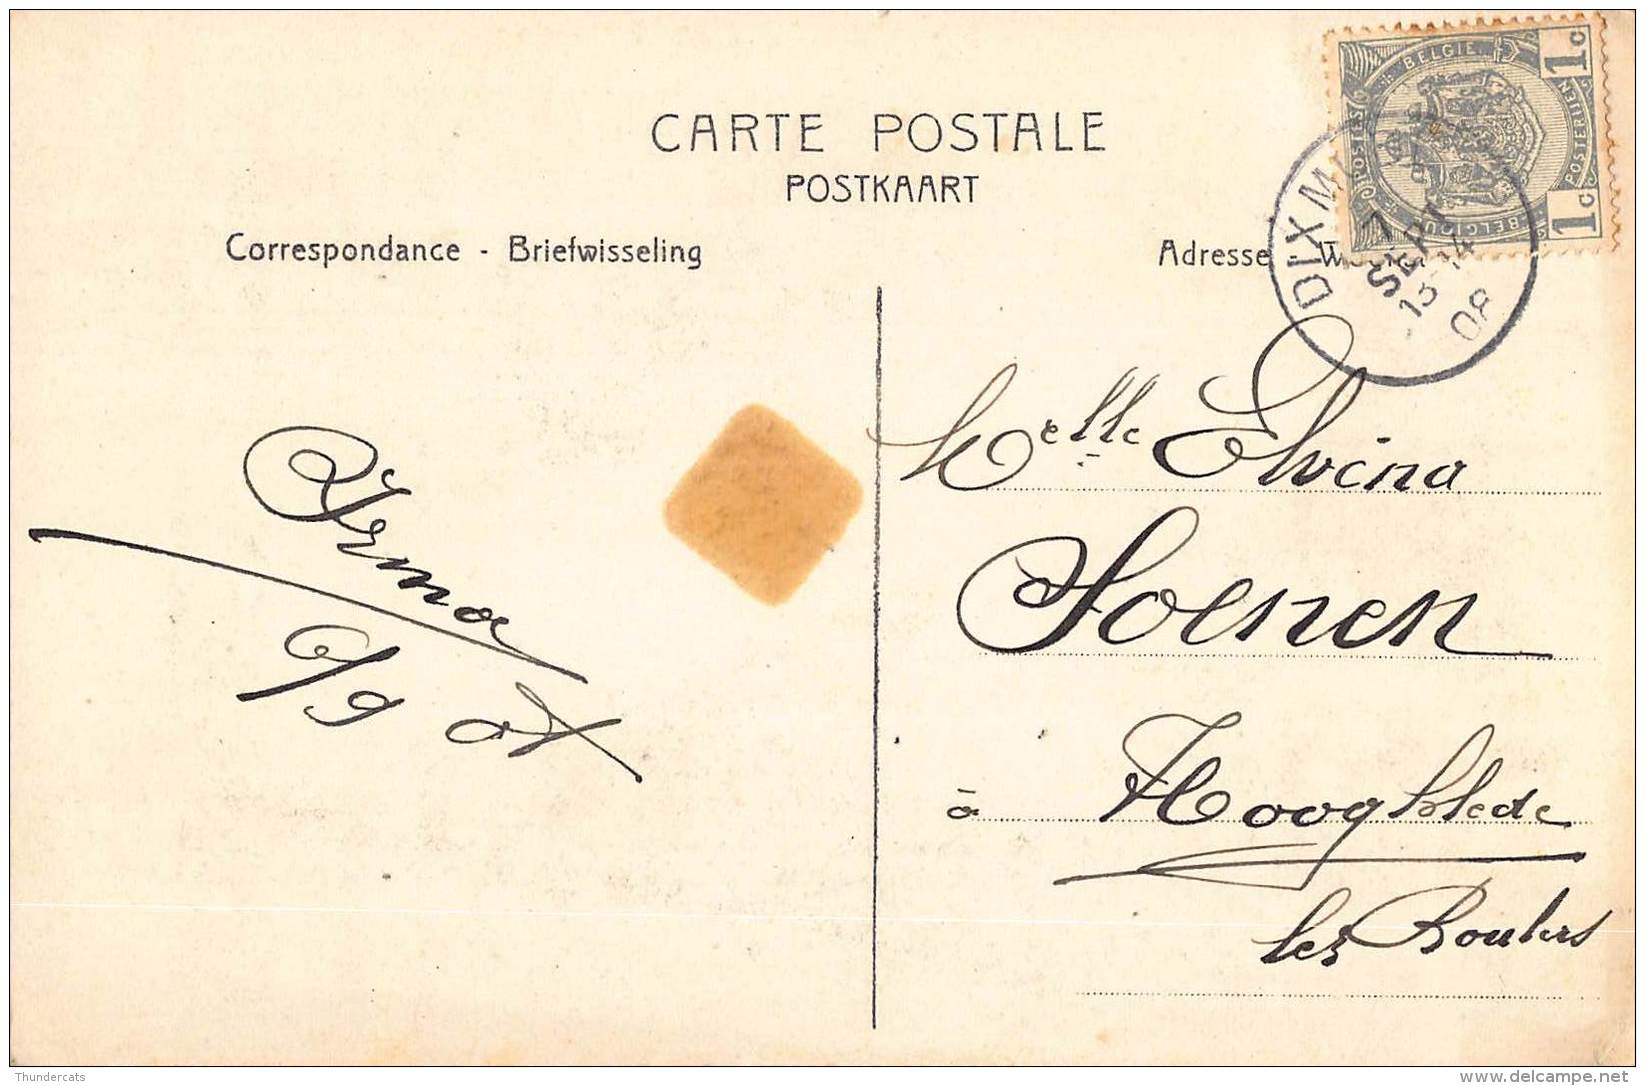 CARTE POSTALE
POSTKAART
Correspondance - Briefwisseling
Adresse
1c
BELGIE
POSTERIJEN
POSTES
BELGIQUE
1c
DIXM
7
SEPT
13-14
08
Irma
6/9 08
Melle Elvina
Soenen
à Hooghlede
lez Roulers
Thundercats
delcampe.net